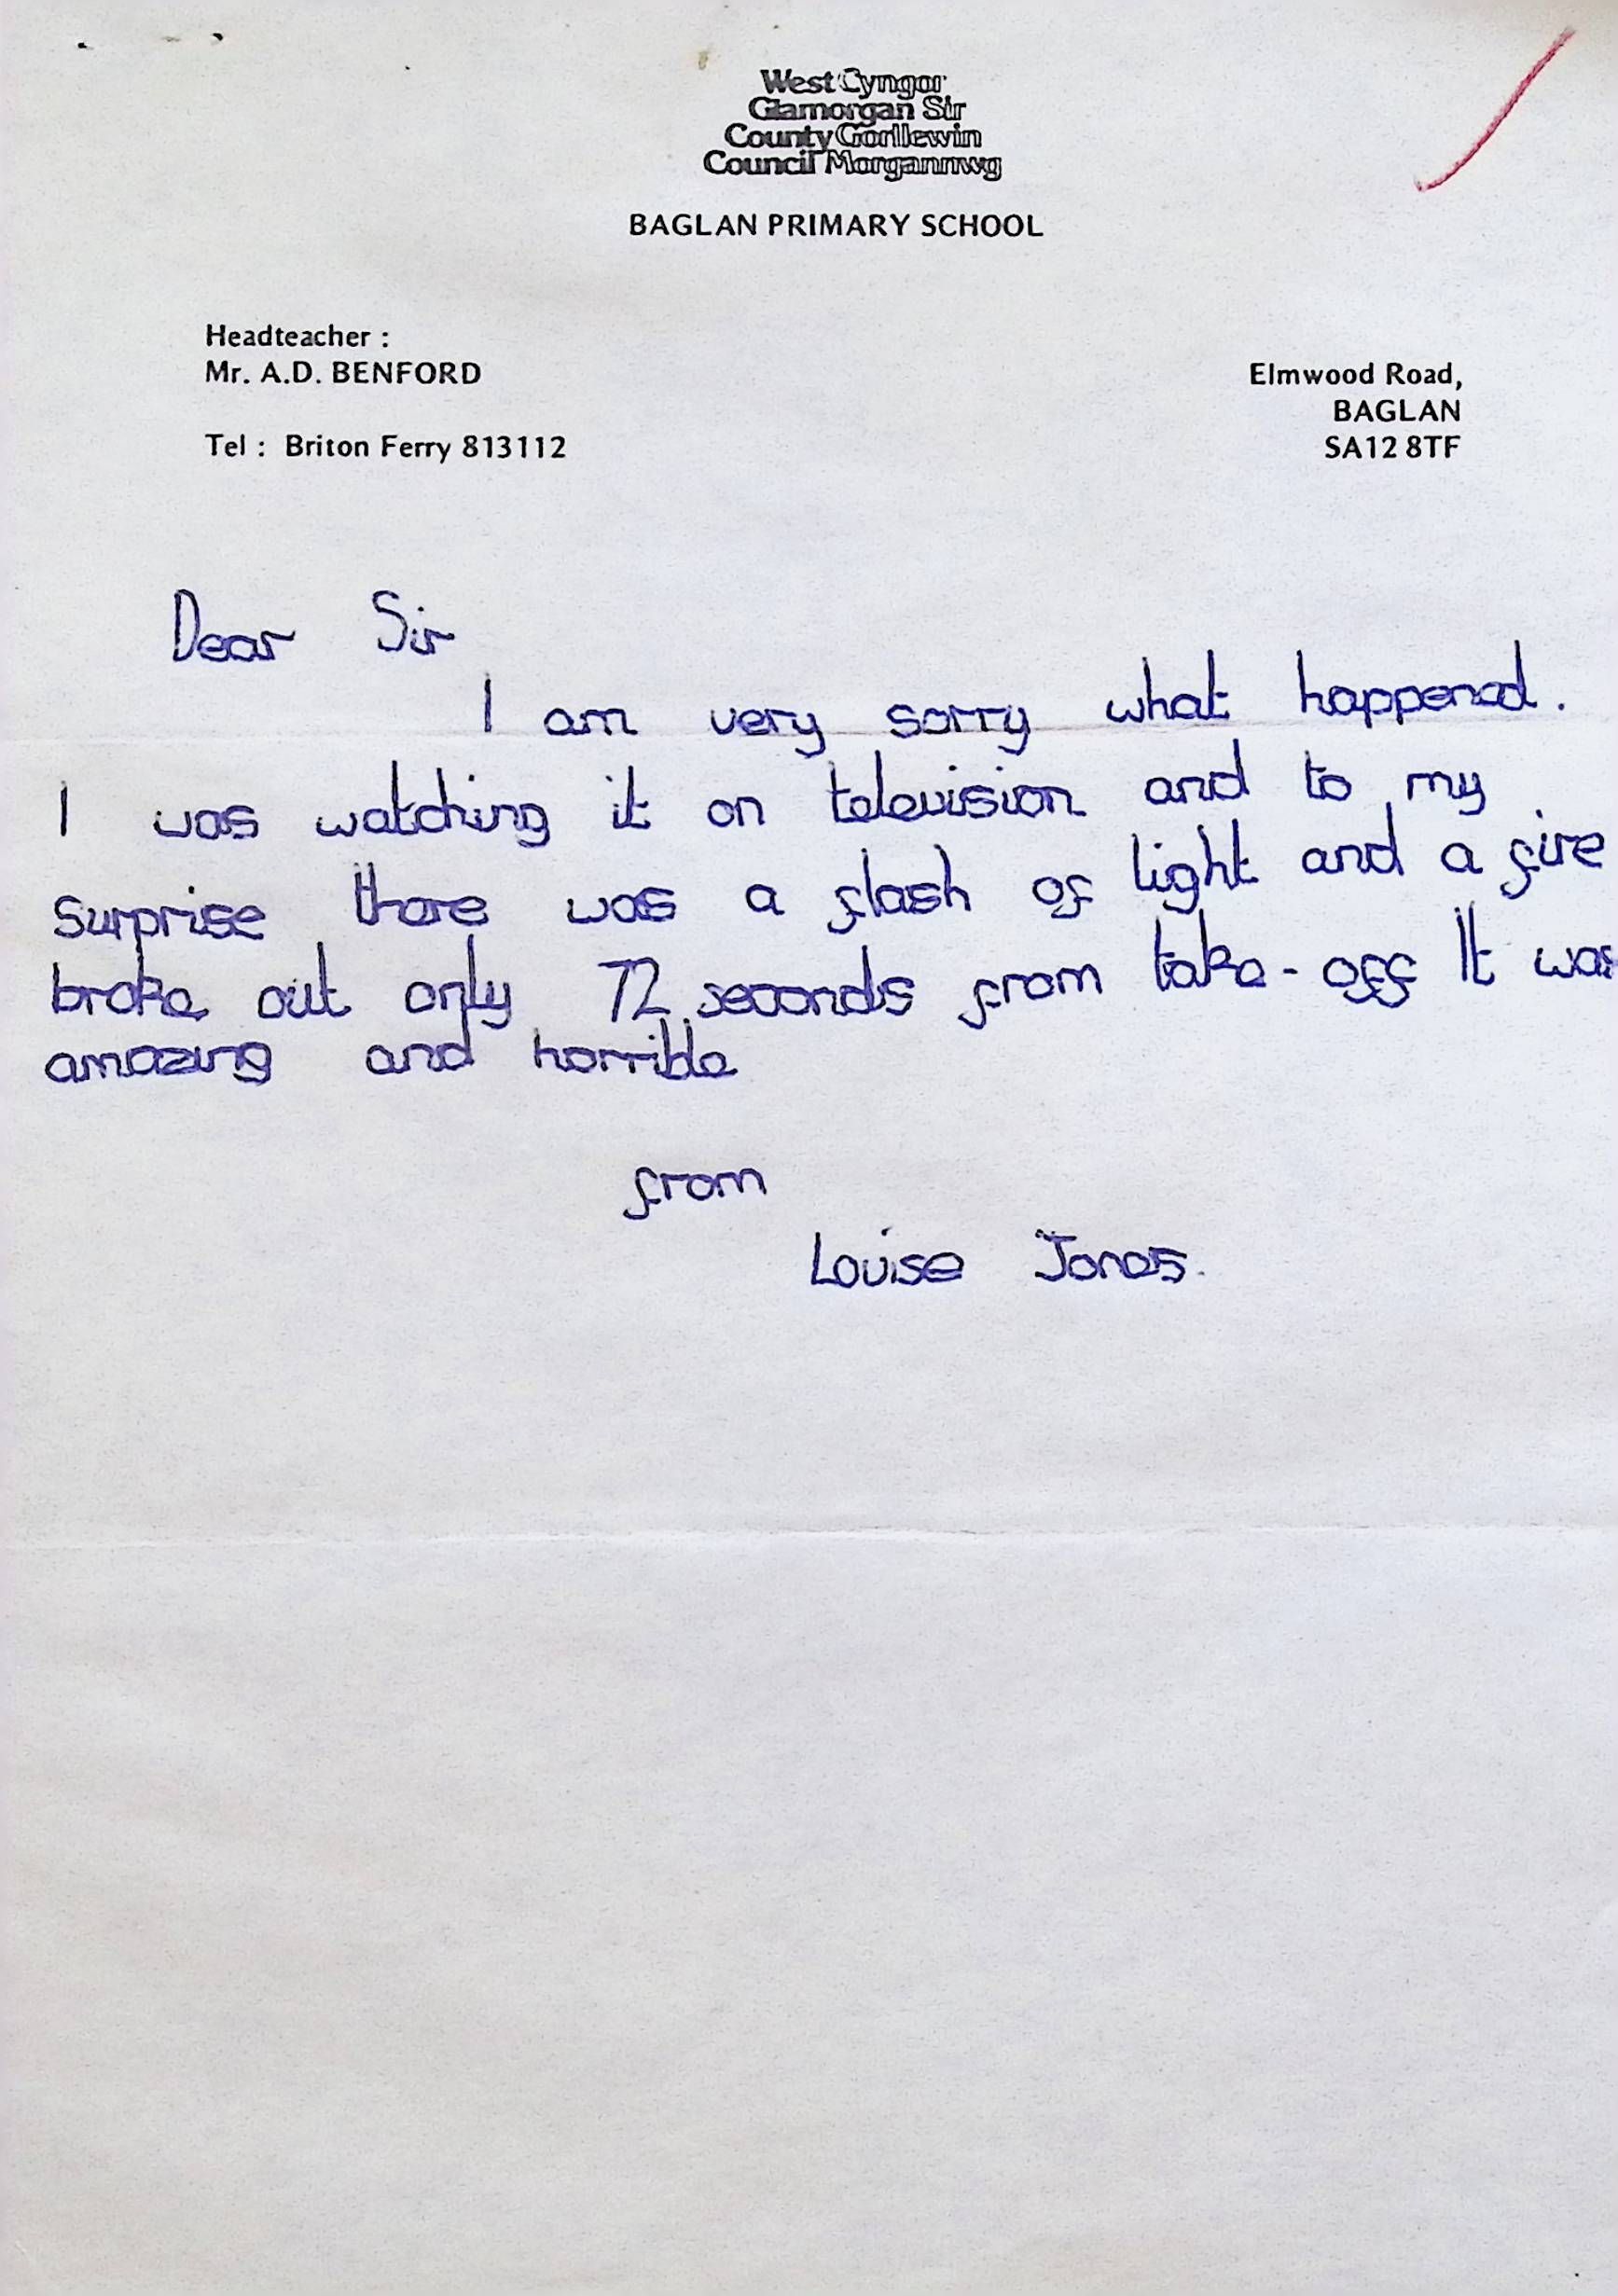 West Cyngor
Glamorgan Sir
County Gorllewin
Council Morgannwg
BAGLAN PRIMARY SCHOOL
Headteacher :
Mr. A.D. BENFORD
Tel : Briton Ferry 813112
Elmwood Road,
BAGLAN
SA12 8TF
Dear Sir
I am very sorry what happened.
I was watching it on television and to my
surprise there was a flash of light and a fire
broke out only 72 seconds from take-off It was
amazing and horrible
from
Louise Jones.